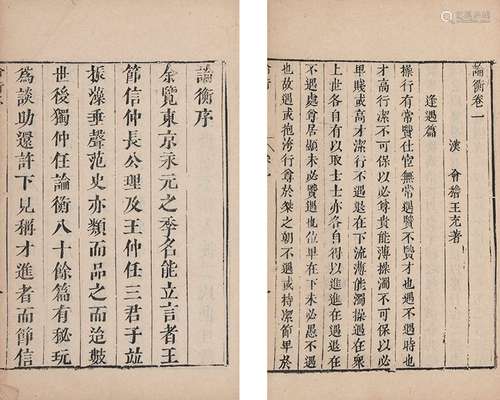 論衡卷一
漢 會稽王充著
逢遇篇
操行有常賢仕宦無常遇賢不賢才也遇不遇時也
才高行潔不可保以必尊貴能薄操濁不可保以必
卑賤或高才潔行不遇退在下流薄能濁操遇在衆
上世各自有以取士士亦各自得以進進在遇退在
不遇處尊居顯未必賢遇也位卑在下未必愚不遇
也故遇或抱洿行尊於桀之朝不遇或持潔節卑於
論衡序
余覽東京永元之季名能立言者王
節信仲長公理及王仲任三君子並
振藻垂聲范史亦類而品之而造數
世後獨仲任論衡八十餘篇有秘玩
爲談助還許下見稱才進者而節信